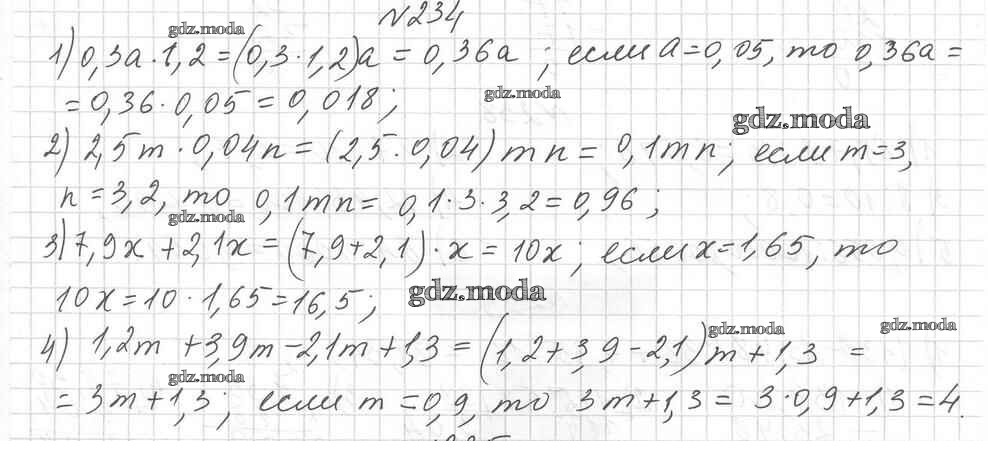 №234
gdz.moda
1) 0,3a·1,2=(0,3·1,2)a=0,36a; если a=0,05, то 0,36a=
=0,36·0,05=0,018;
gdz.moda
gdz.moda
2) 2,5m·0,04n=(2,5·0,04)mn=0,1mn; если m=3,
n=3,2, то 0,1mn=0,1·3·3,2=0,96;
gdz.moda
3) 7,9x+2,1x=(7,9+2,1)·x=10x; если x=1,65, то
10x=10·1,65=16,5;
gdz.moda
4) 1,2m+3,9m-2,1m+1,3=(1,2+3,9-2,1)m+1,3=
gdz.moda
gdz.moda
gdz.moda
=3m+1,3; если m=0,9, то 3m+1,3=3·0,9+1,3=4.